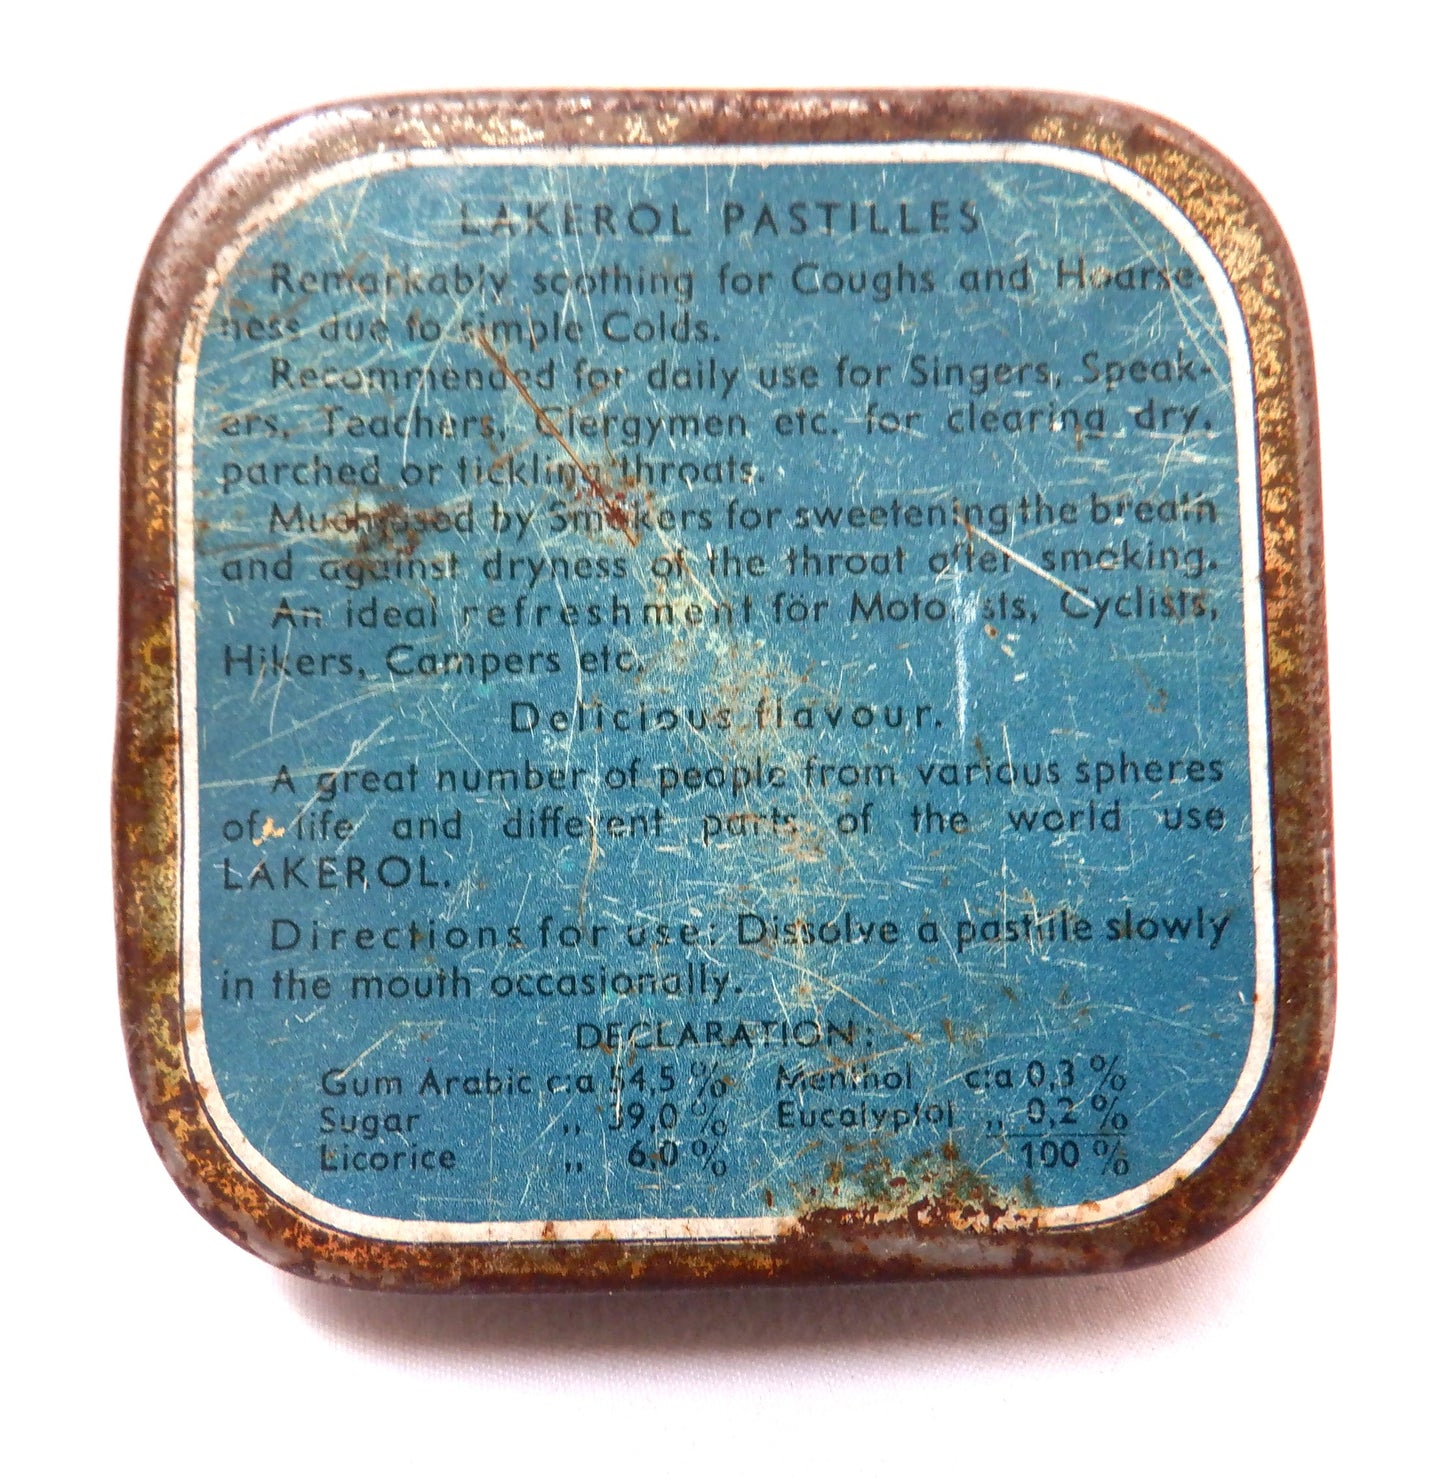 LAKEROL PASTILLES
Remarkably soothing for Coughs and Hoarse-
ness due to simple Colds.
Recommended for daily use for Singers, Speak-
ers, Teachers, Clergymen etc. for clearing dry,
parched or tickling throats.
Much used by Smokers for sweetening the breath
and against dryness of the throat after smoking.
An ideal refreshment for Motorists, Cyclists,
Hikers, Campers etc.
Delicious flavour.
A great number of people from various spheres
of life and different parts of the world use
LAKEROL.
Directions for use: Dissolve a pastille slowly
in the mouth occasionally.
DECLARATION:
Gum Arabic c:a 54,5 % Menthol c:a 0,3 %
Sugar „ 39,0 % Eucalyptol „ 0,2 %
Licorice „ 6,0 % 100 %